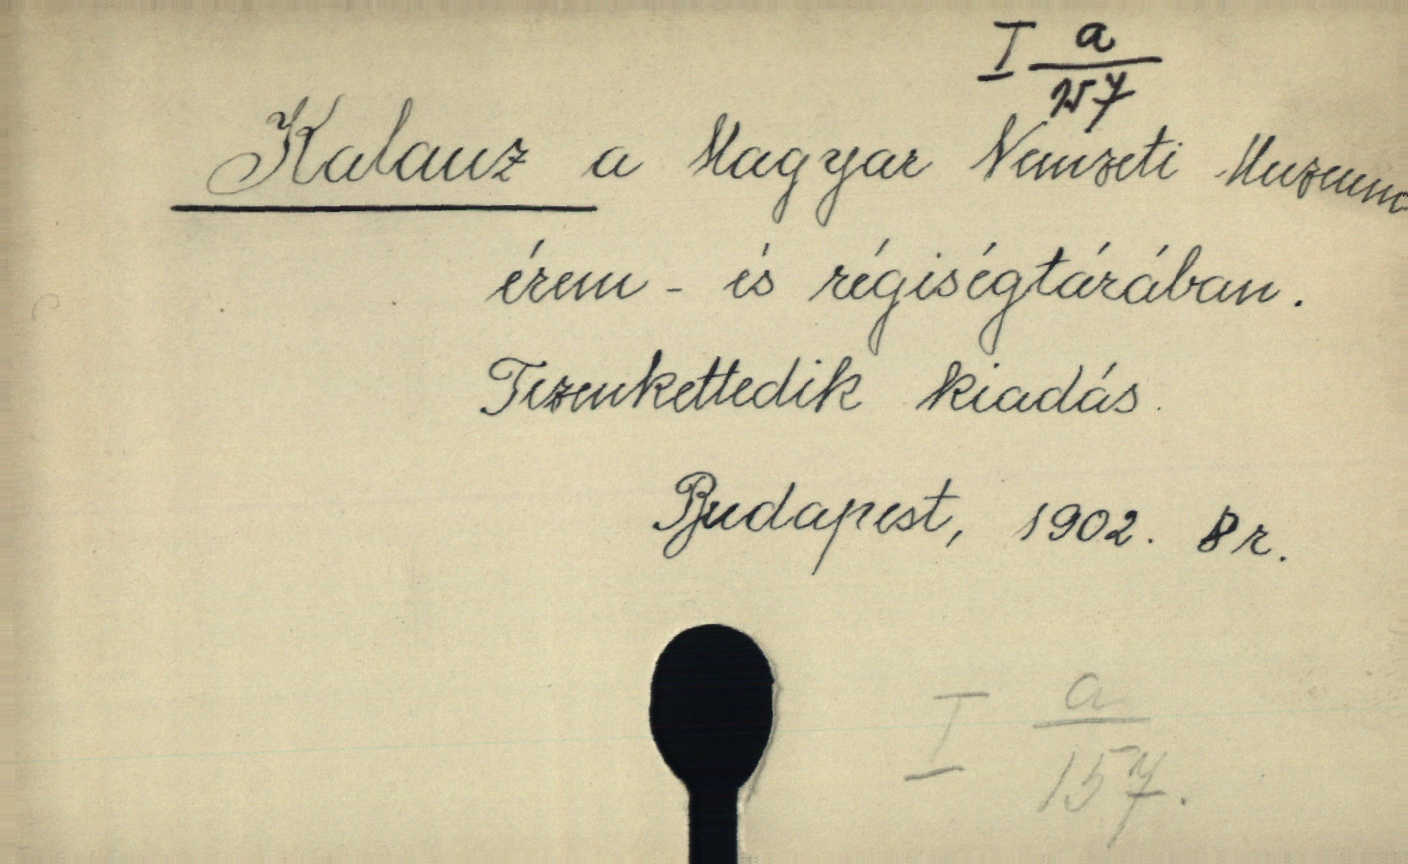 I a/157
Kalauz a Magyar Nemzeti Muzeum
érem - és régiségtárában.
Tizenkettedik kiadás.
Budapest, 1902. 8 r.
I a/157.